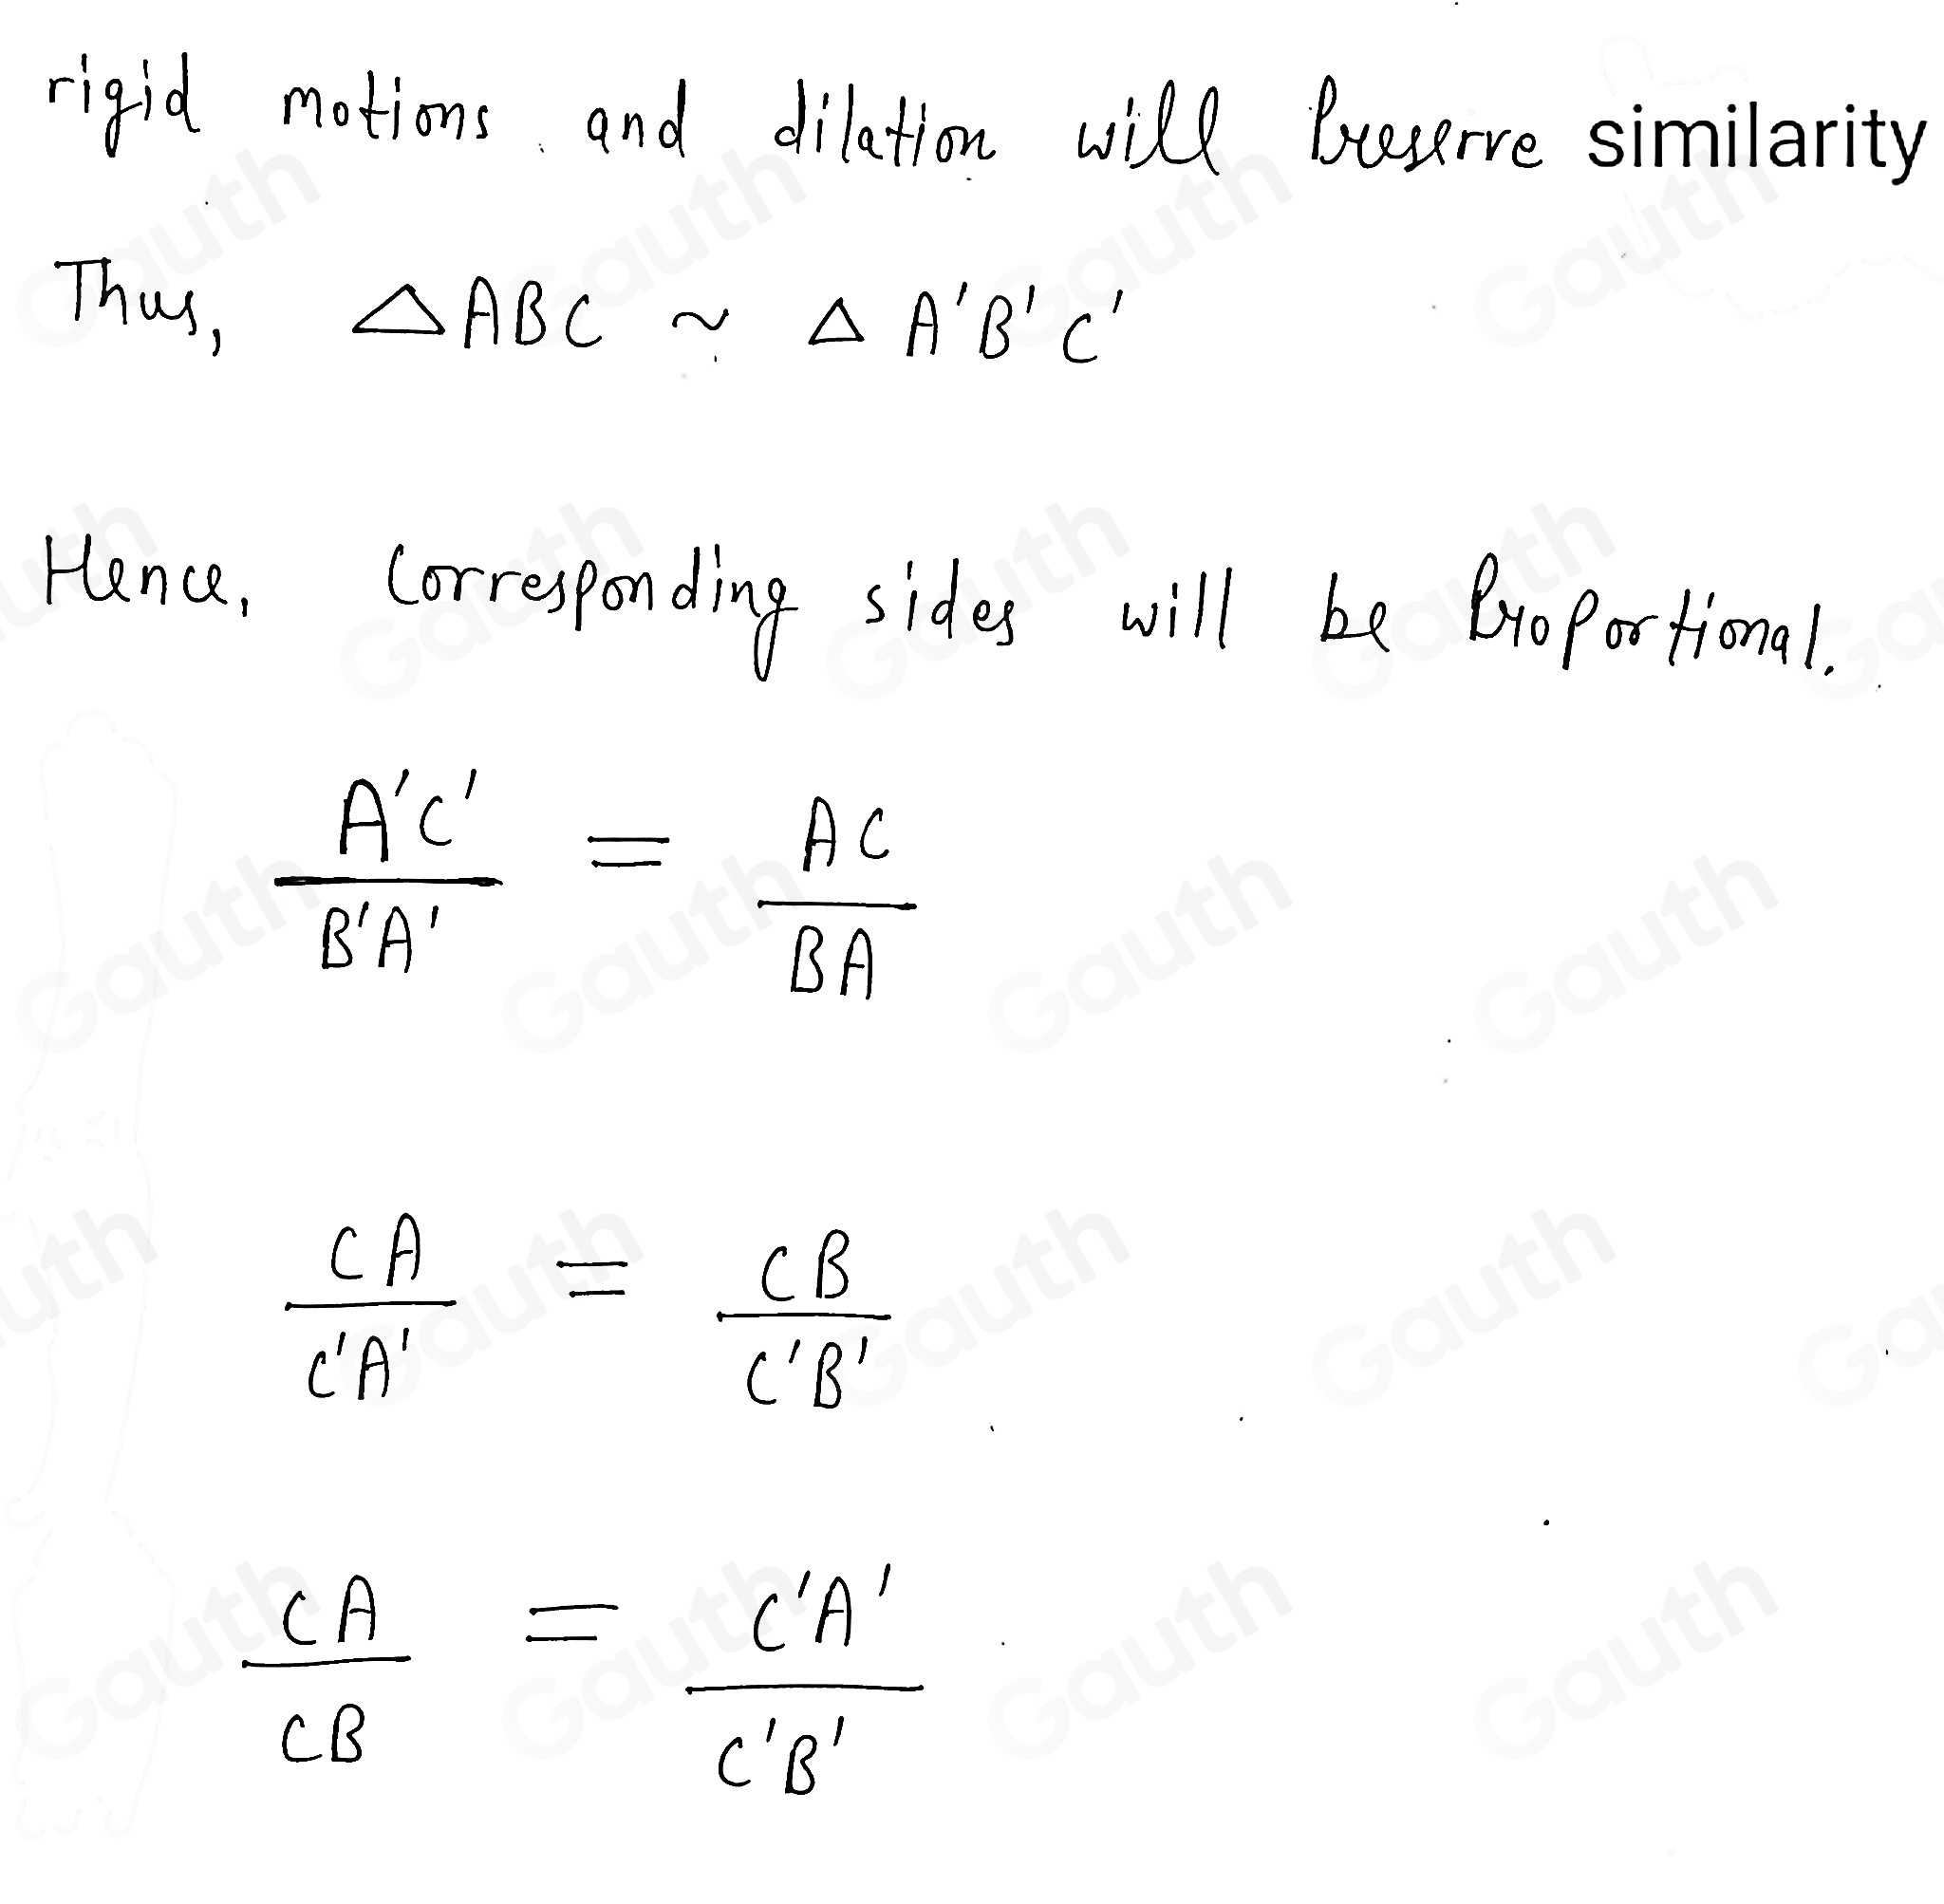 rigid motions and dilation will Preserve similarity
Thus, △ABC ~ △A'B'C'
Hence, Corresponding sides will be Proportional.
A'C'/B'A' = AC/BA
CA/C'A' = CB/C'B'
CA/CB = C'A'/C'B'
Gauth